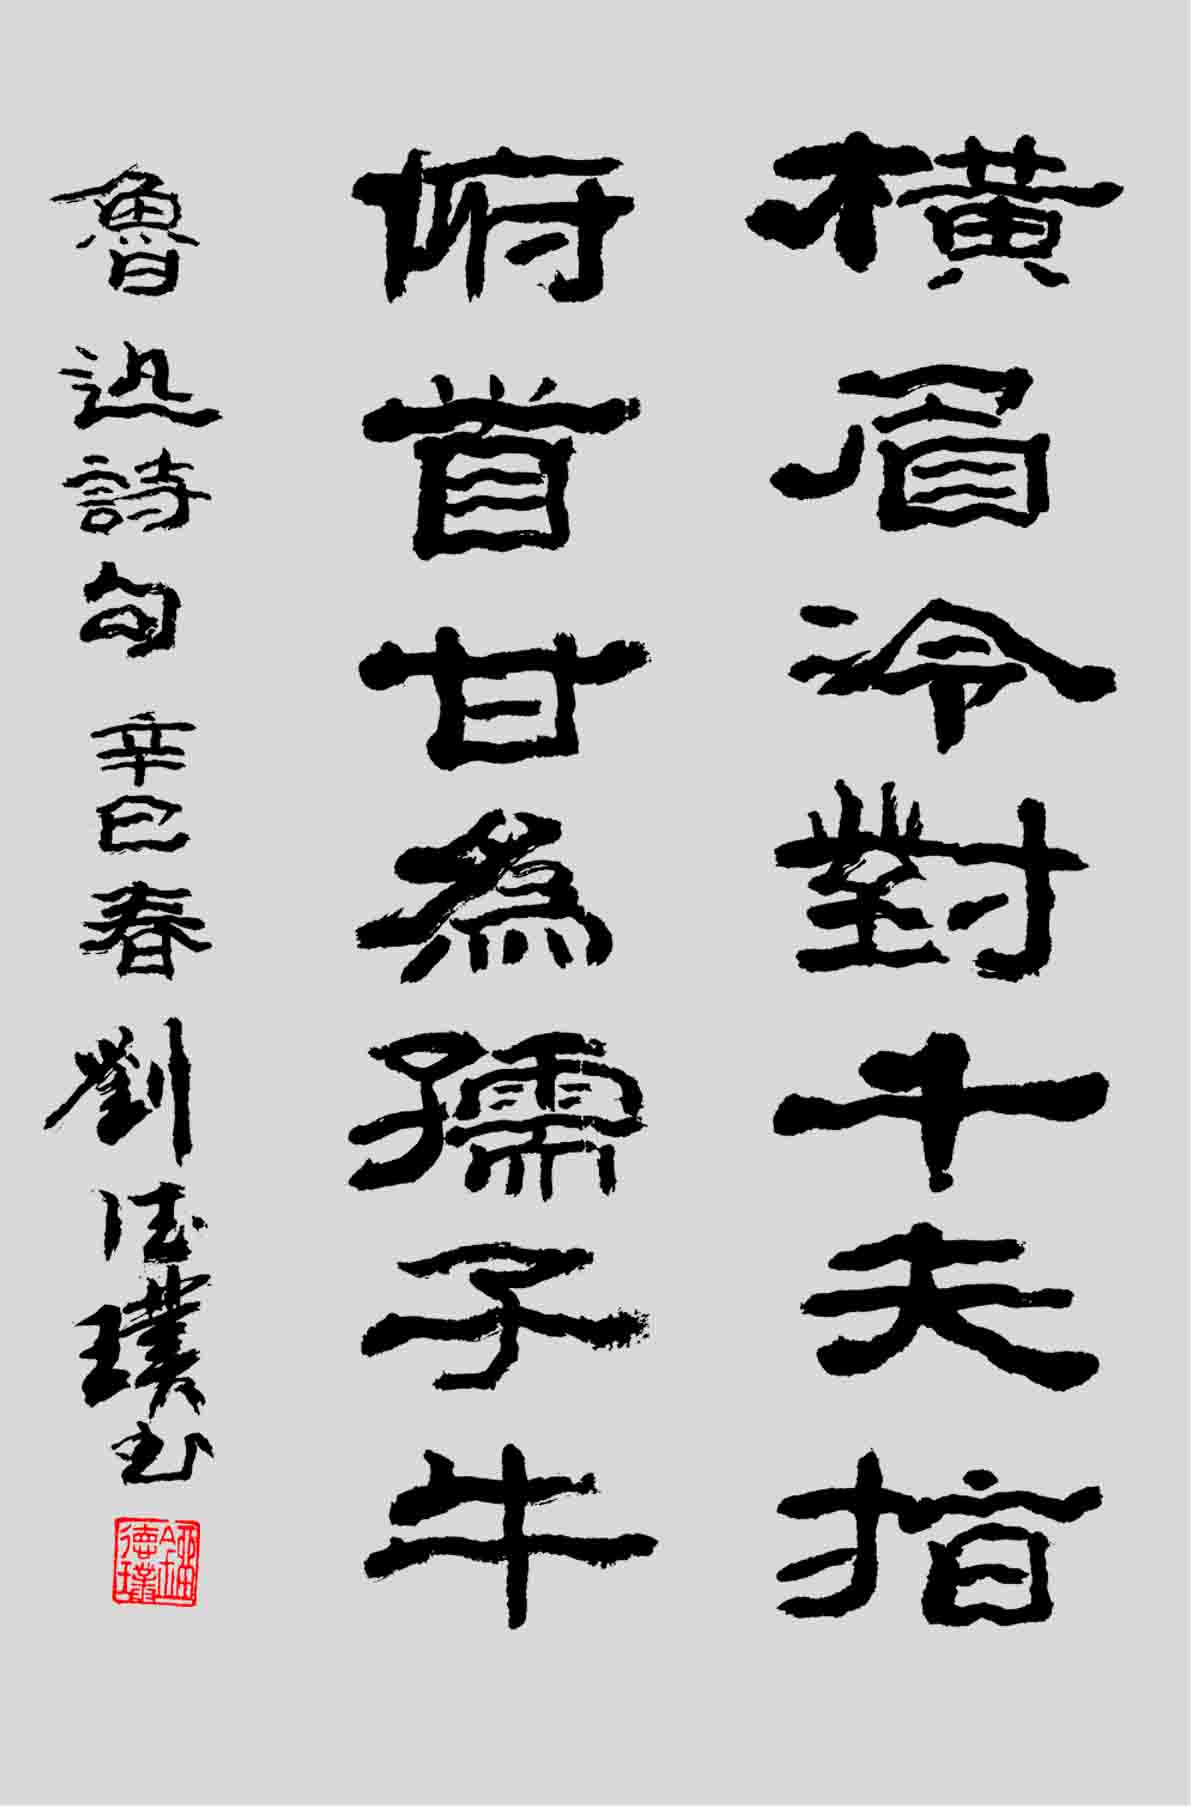 橫眉冷對千夫指
俯首甘為孺子牛
魯迅詩句 辛巳春 劉德璞书
德璞